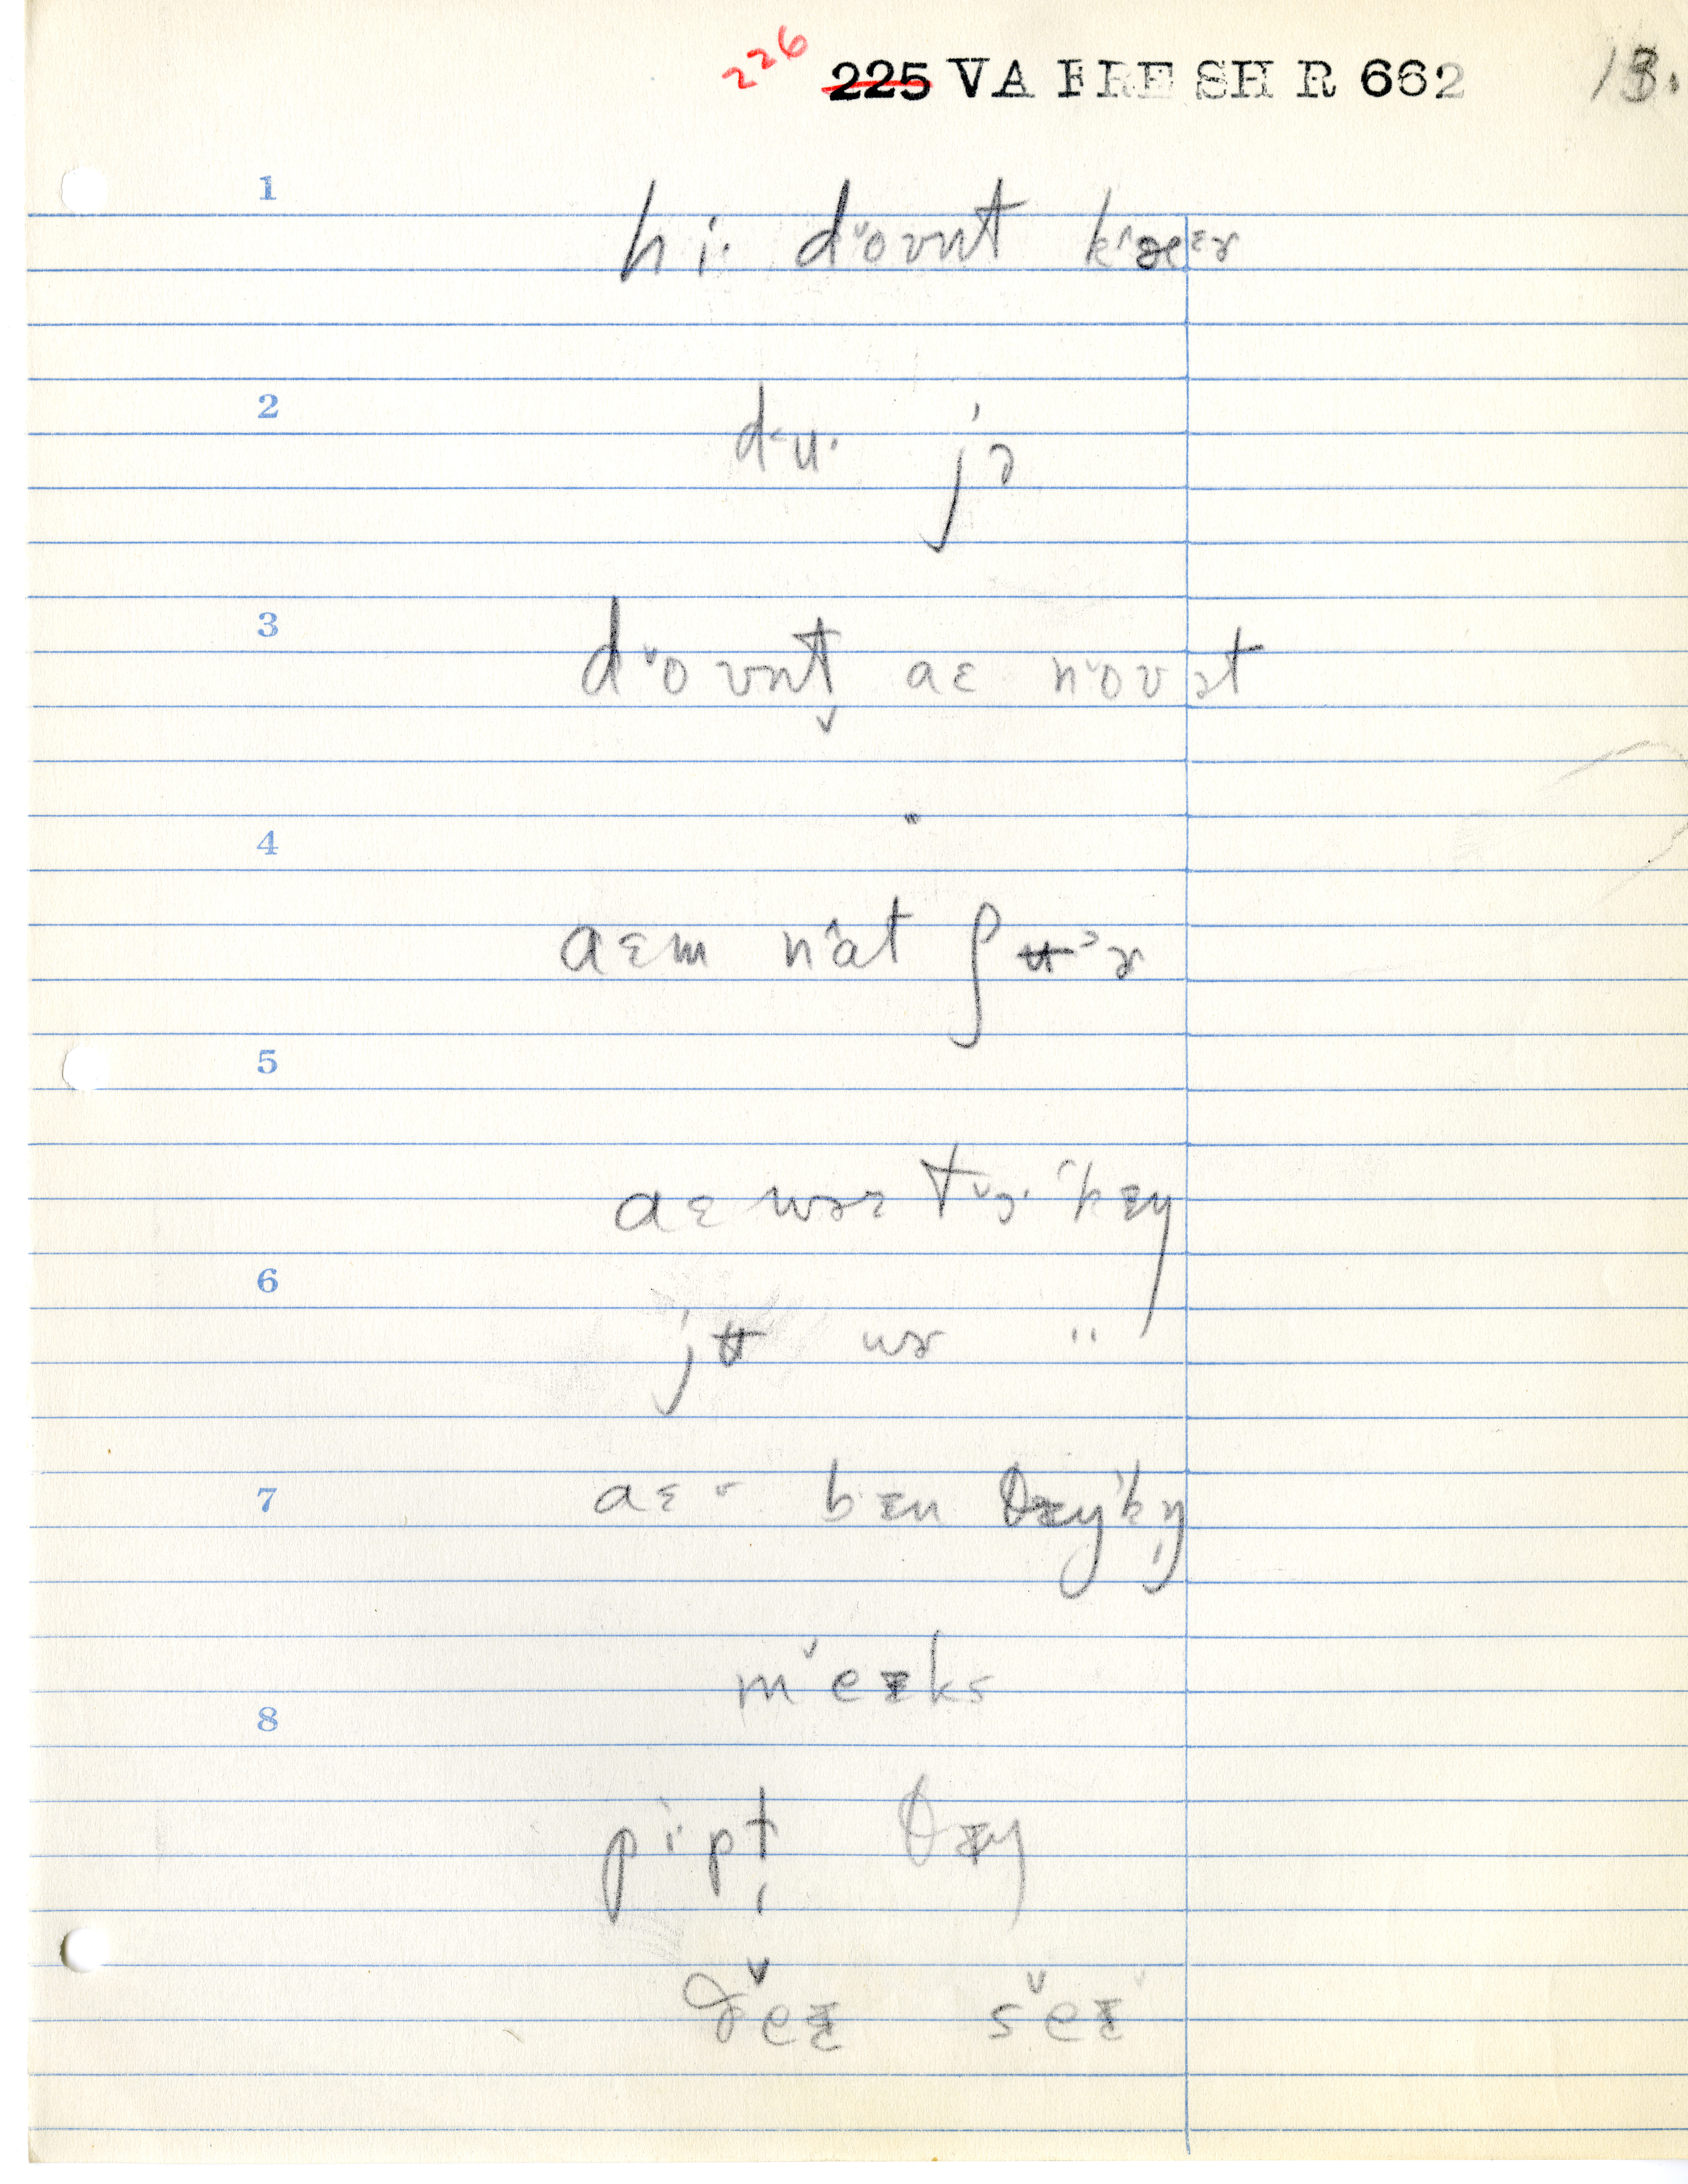 226
225 VA FRE SH R 662 13.
1
hi· dˇoʊnt kˆæɛɚ
2
d˂u· jə
3
dˇoʊnt̬ aɛ nˇoʊət
4
aɛm nˆat ʃʉɚ
5
aɛ wəz
6
jʉ wɚ "
7
aɛ bɪn θɪŋkŋ̩
mˇeɪks
8
pi·pt̩ θɪŋ
ðˇeɪ sˇeɪ